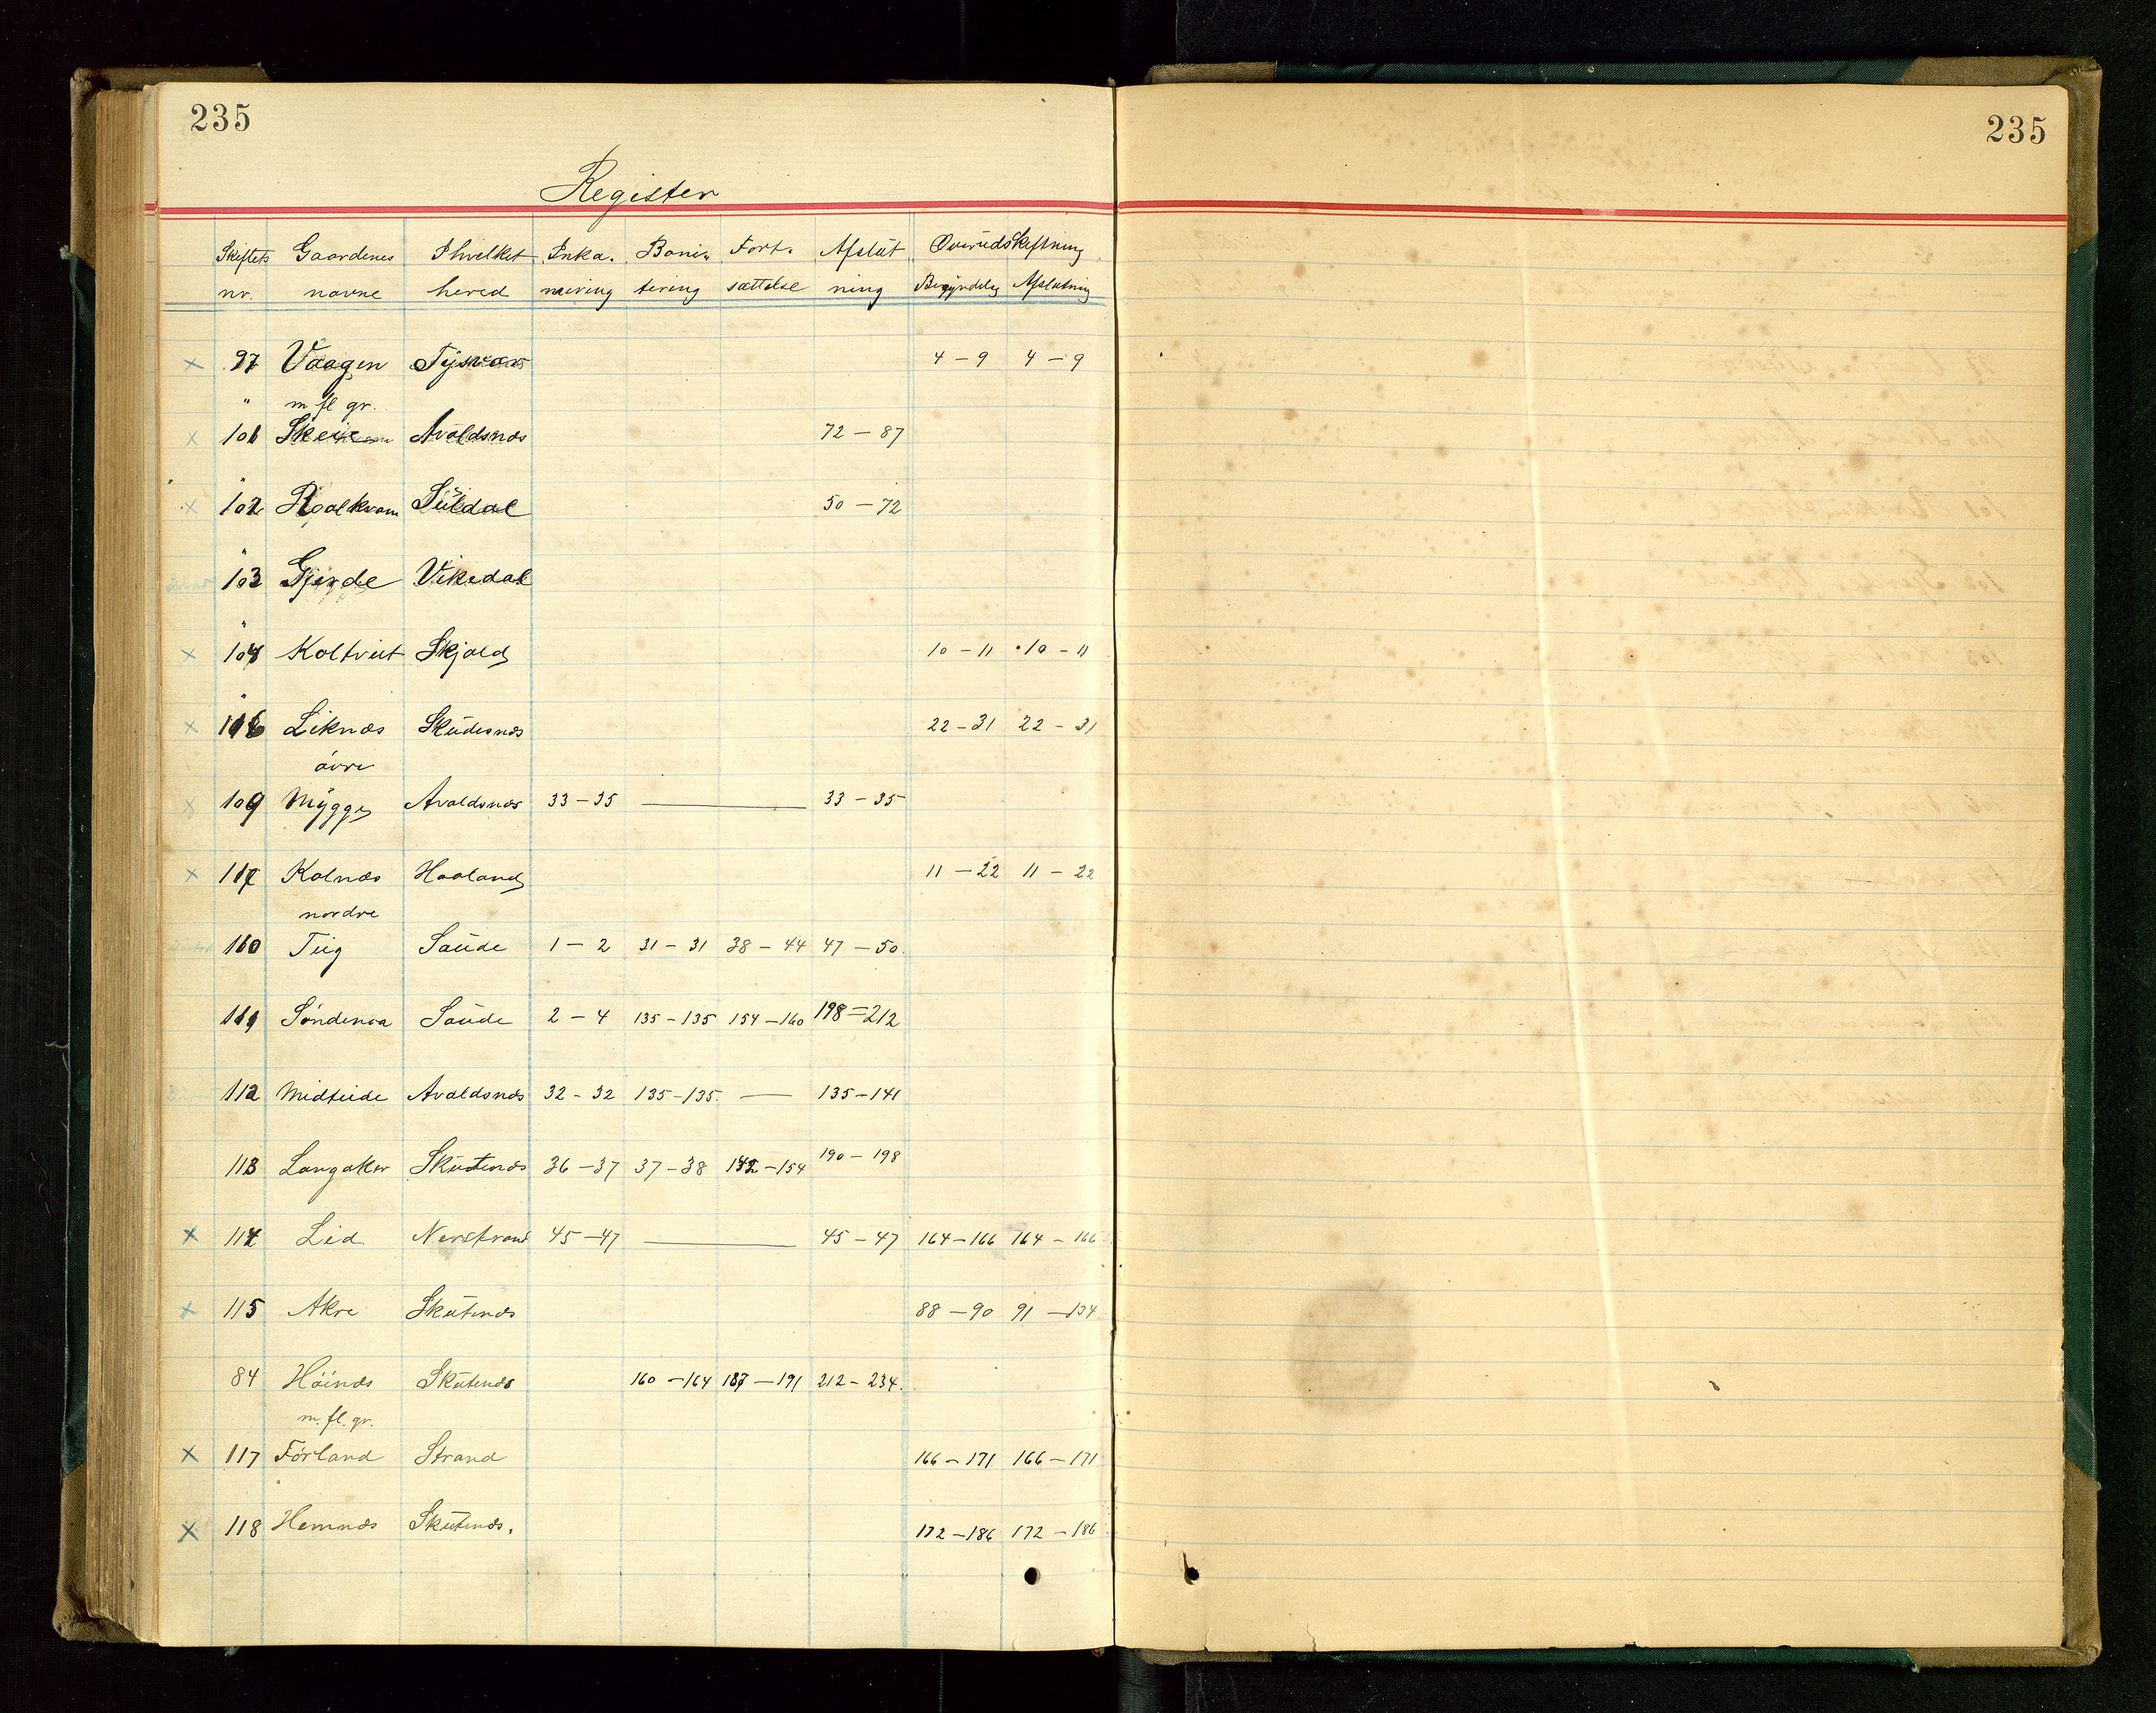 235
235
Register
Skiftets Gaardenes Ihvilket Inka. Boni- Fort. Afslut Overudskiftning
nr. navne hered mering tering sættelse ning Begyndelse Afslutning
x 97 Vaagen Tysvær 4 – 9 4 – 9
" m fl gr.
x 101 Skeie Avaldsnæs 72 – 87
x 102 Roalkvam Suldal 50 – 72
103 Gjerde Vikedal
x 104 Koltveit Skjold 10 – 11 10 – 11
x 106 Liknæs Skudesnæs 22 – 31 22 – 31
övre
x 109 Mygge Avaldsnæs 33 – 35 — 33 – 35
x 117 Kolnæs Haaland 11 – 22 11 – 22
nordre
110 Tug Saude 1 – 2 31 – 31 38 – 44 47 – 50
111 Söndenaa Saude 2 – 4 135 – 135 154 – 160 198 = 212
112 Midteide Avaldsnæs 32 – 32 135 – 135 — 135 – 141
113 Langaker Skutenæs 36 – 37 37 – 38 142 – 154 190 – 198
x 114 Lid Nerstrand 45 – 47 — 45 – 47 164 – 166 164 – 166
x 115 Akre Skutenæs 88 – 90 91 – 134
84 Höinæs Skutenæs 160 – 164 187 – 191 212 – 234.
m. fl. gr.
x 117 Förland Strand 166 – 171 166 – 171
x 118 Hemnæs Skutenæs. 172 – 186 172 – 186